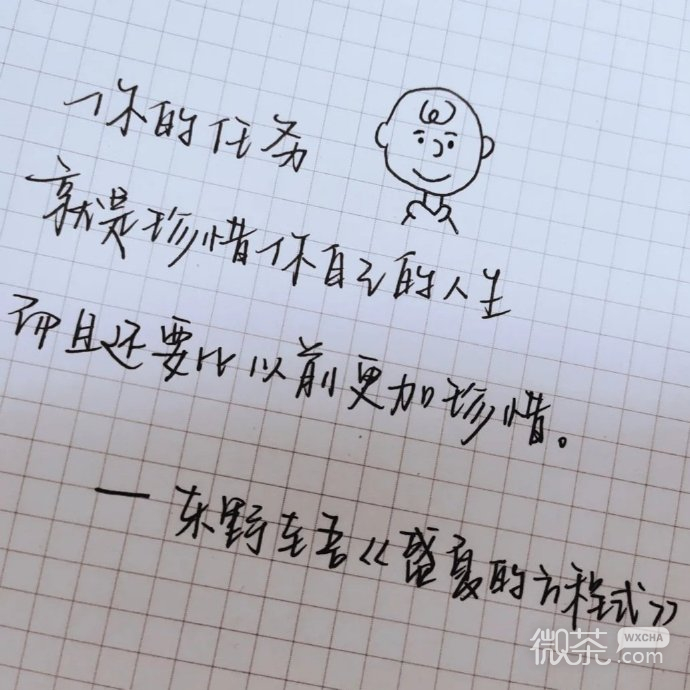 你的任务
就是珍惜你自己的人生
而且还要比以前更加珍惜。
—东野圭吾《盛夏的方程式》
微茶 WXCHA
.com